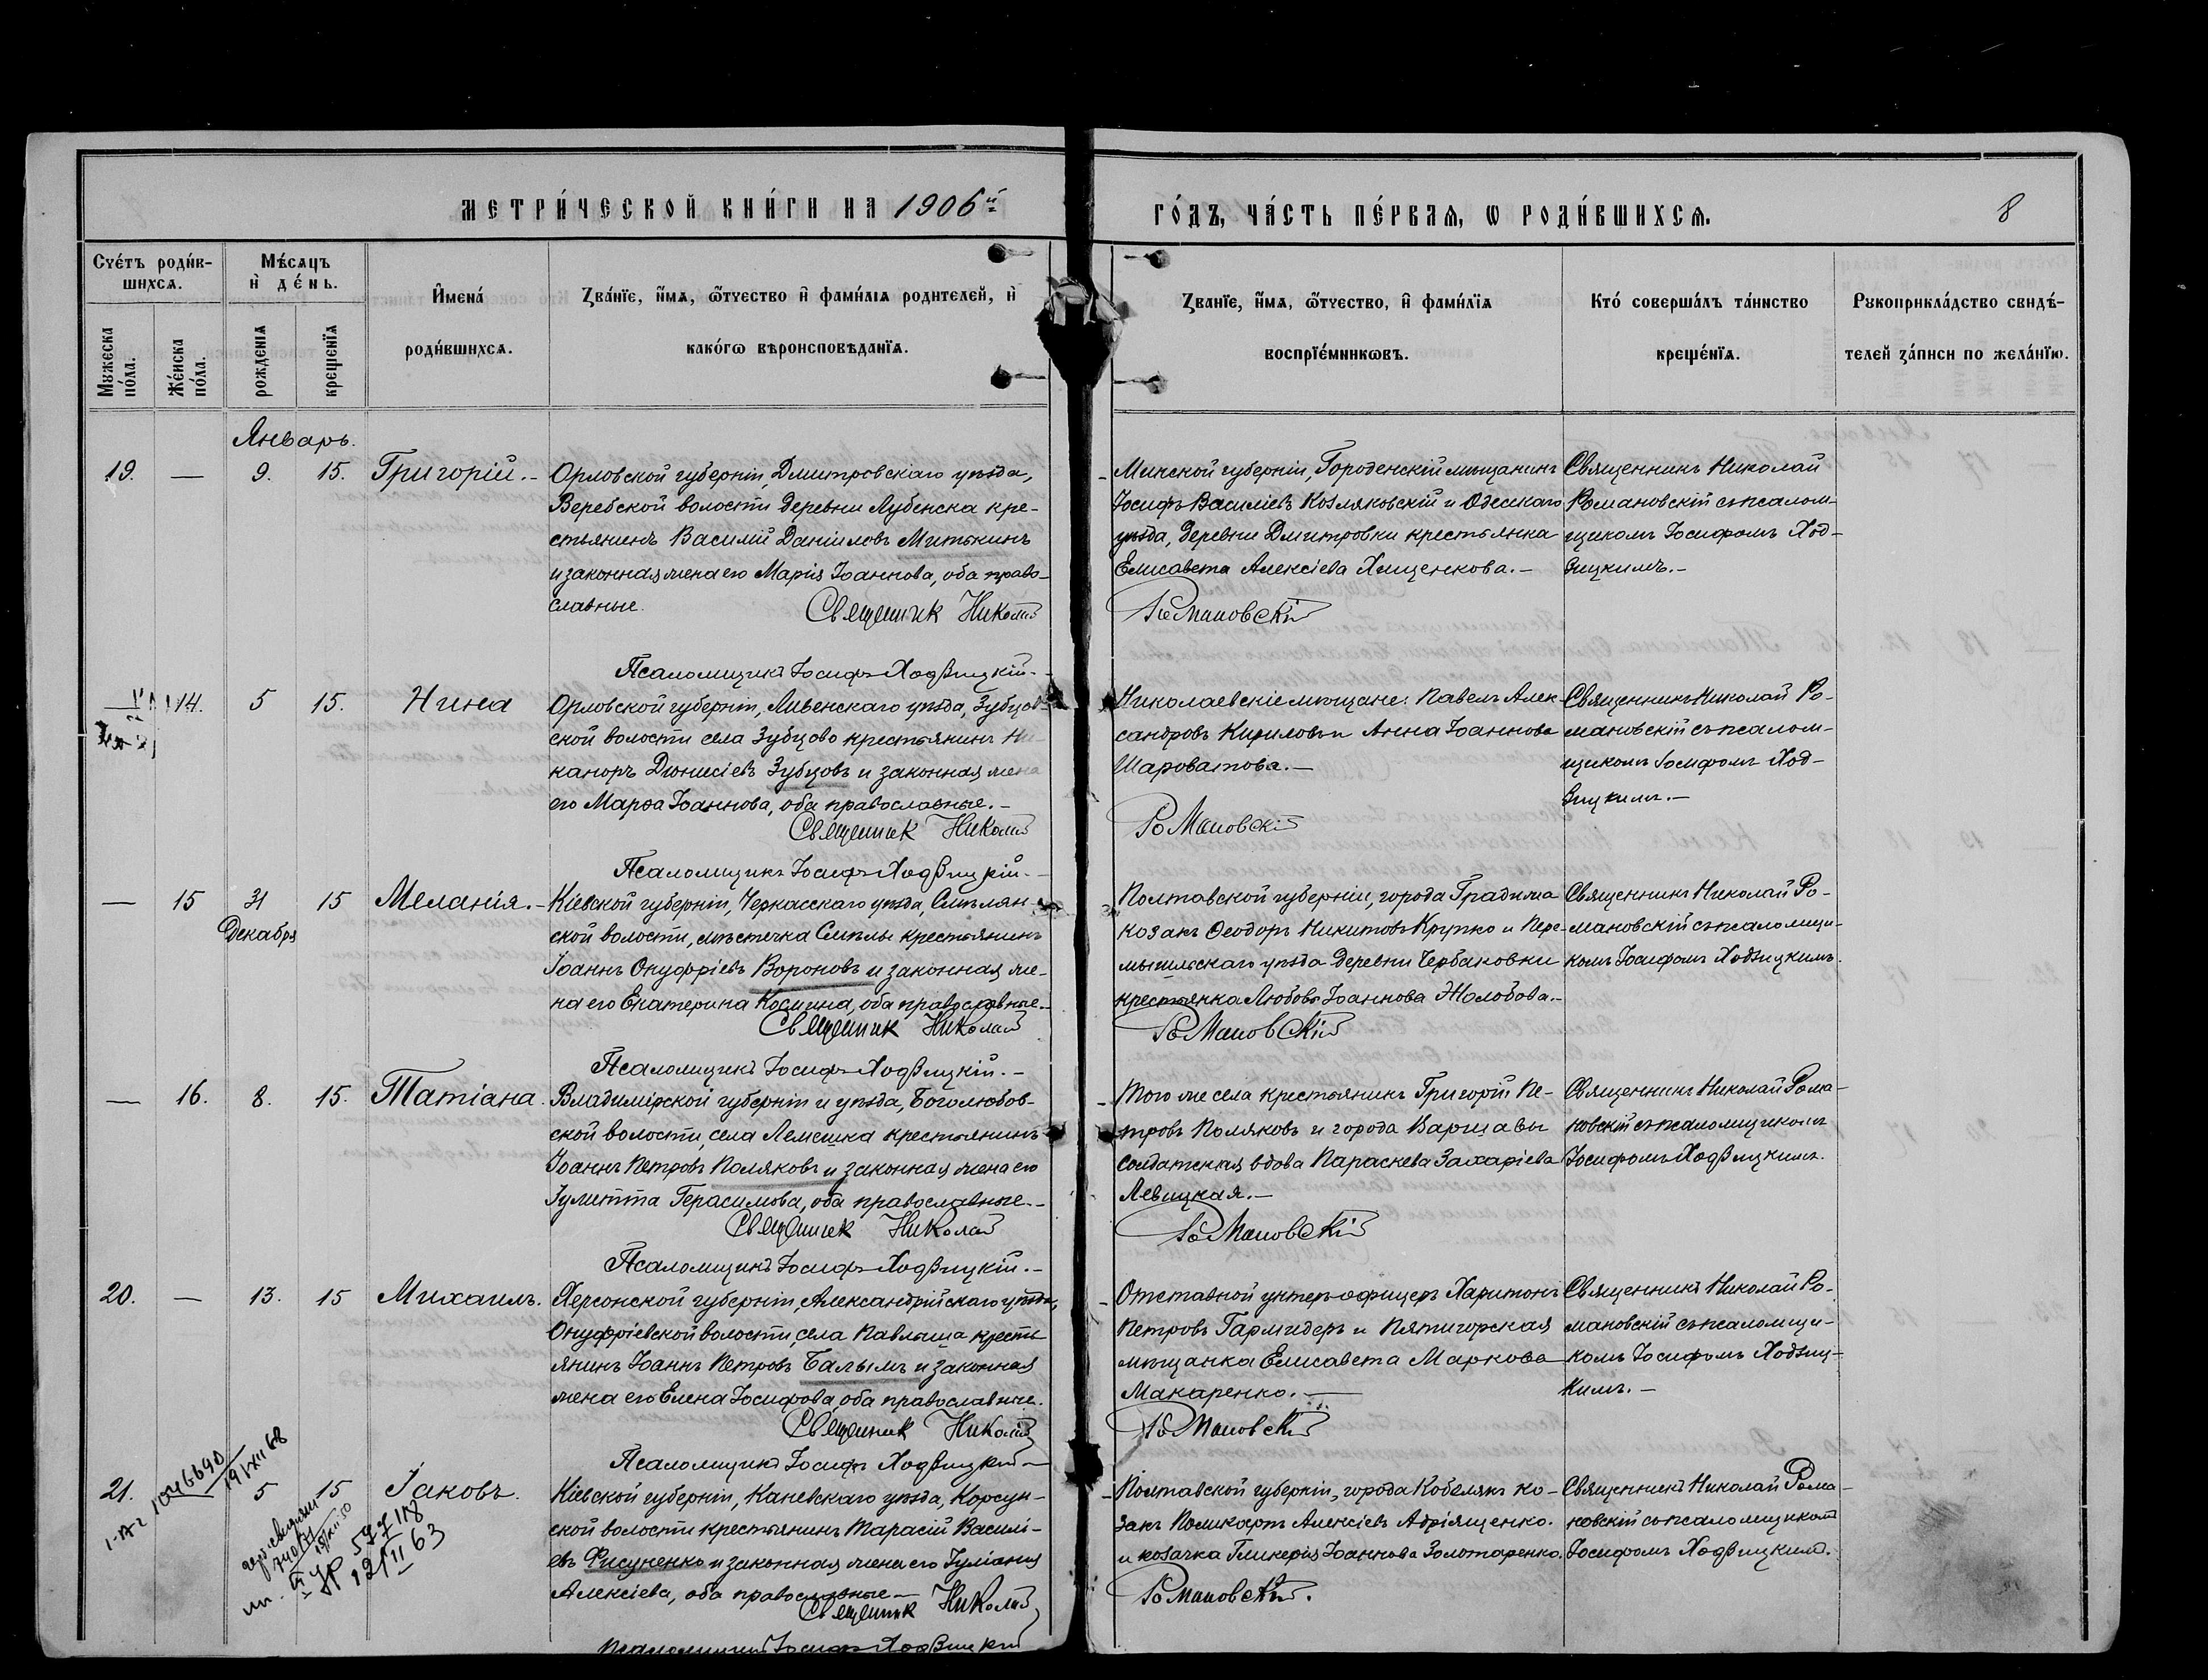 МЕТРИ́ЧЕСКОЙ КНИ́ГИ НА 1906й
ГО́ДЪ, ЧА́СТЬ ПЕ́РВАѦ, Ѡ РОДИ́ВШИХСѦ.
8
Счетъ роди́в-
шихсѧ.
Мѣ́сѧцъ
и де́нь.
Мꙋжеска
по́ла.
Же́нска
по́ла.
рожденїѧ
крещенїѧ
Имена́
роди́вшихсѧ.
Зва́нїе, и́мѧ, ѻ́тчество и фами́лїѧ родителей, и
како́гѡ вѣроисповѣданїѧ.
Званїе, и́мѧ, ѻ́тчество, и фами́лїѧ
воспрїе́мникѡвъ.
Кто́ соверша́лъ та́инство
креще́нїѧ.
Рꙋкоприкла́дство свидѣ́-
телей за́писи по жела́нїю.
Январь.
19. — 9. 15. Григорій.-
Орловской губерніи, Дмитровскаго уѣзда,
Веребской волости деревни Лубенска кре-
стьянинъ Василій Даніиловъ Митькинъ
и законная жена его Марія Іоаннова, оба право-
славные.
Священник Николай
Псаломщикъ Іосифъ Ходзицкій.-
Минской губерніи, Городенскій мѣщанинъ
Іосифъ Василіевъ Козляковскій и Одесскаго
уѣзда, деревни Дмитровки крестьянка
Елисавета Алексіева Хищенкова.-
Романовскій
Священникъ Николай
Романовскій съ псалом-
щикомъ Іосифомъ Ход-
зицкимъ.-
— 14. 5 15. Нина
Орловской губерніи, Ливенскаго уѣзда, Зубцов-
ской волости села Зубцово крестьянинъ Ни-
каноръ Діонисіевъ Зубцовъ и законная жена
его Марѳа Іоаннова, оба православные.-
Священник Николай
Псаломщикъ Іосифъ Ходзицкій.-
Николаевскіе мѣщане: Павелъ Алек-
сандровъ Кириловъ и Анна Іоаннова
Шароватова.-
Романовскій
Священникъ Николай Ро-
мановскій съ псалом-
щикомъ Іосифомъ Ход-
зицкимъ.-
— 15 31 15 Меланія.-
Декабря
Кіевской губерніи, Черкасскаго уѣзда, Смѣлян-
ской волости, мѣстечка Смѣлы крестьянинъ
Іоаннъ Онуфріевъ Вороновъ и законная же-
на его Екатерина Космина, оба православные.-
Священник Николай
Псаломщикъ Іосифъ Ходзицкій.-
Полтавской губерніи, города Градижа
козакъ Ѳеодоръ Никитовъ Крупко и Пере-
мышльскаго уѣзда деревни Чербаковки
крестьянка Любовь Іоаннова Жолобова.-
Романовскій
Священникъ Николай Ро-
мановскій съ псаломщи-
комъ Іосифомъ Ходзицкимъ.
— 16. 8. 15. Татіана.
Владимірской губерніи и уѣзда, Боголюбов-
ской волости, села Лемешка крестьянинъ
Іоаннъ Петровъ Поляковъ и законная жена его
Іулитта Герасимова, оба православные.-
Священник Николай
Псаломщикъ Іосифъ Ходзицкій.-
Того же села крестьянинъ Григорій Пе-
тровъ Поляковъ и города Варшавы
солдатская вдова Параскева Захаріева
Левицкая.-
Романовскій
Священникъ Николай Рома-
новскій съ псаломщикомъ
Іосифомъ Ходзицкимъ.
20. — 13. 15 Михаилъ.
Херсонской губерніи, Александрійскаго уѣзда,
Онуфріевской волости, села Павлыша кресть-
янинъ Іоаннъ Петровъ Балымъ и законная
жена его Елена Іосифова, оба православные.
Священник Николай
Псаломщикъ Іосифъ Ходзицкій-
Отставной унтеръ-офицеръ Харитонъ
Петровъ Гармидеръ и Пятигорская
мѣщанка Елисавета Маркова
Макаренко.-
Романовскій
Священникъ Николай Ро-
мановскій съ псаломщи-
комъ Іосифомъ Ходзиц-
кимъ.-
21. 5 15 Іаковъ.
1046690
19/XII 68
597118
12/II 63
Кіевской губерніи, Каневскаго уѣзда, Корсун-
ской волости крестьянинъ Тарасій Василі-
евъ Фисуненко и законная жена его Іуліанія
Алексіева, оба православные-
Священник Николай
Псаломщикъ Іосифъ Ходзицкій
Полтавской губерніи, города Кобелякъ ко-
закъ Поликарпъ Алексіевъ Адріященко.
и козачка Гликерія Іоаннова Золотаренко.
Романовскій.
Священникъ Николай Рома-
новскій съ псаломщикомъ
Іосифомъ Ходзицкимъ.